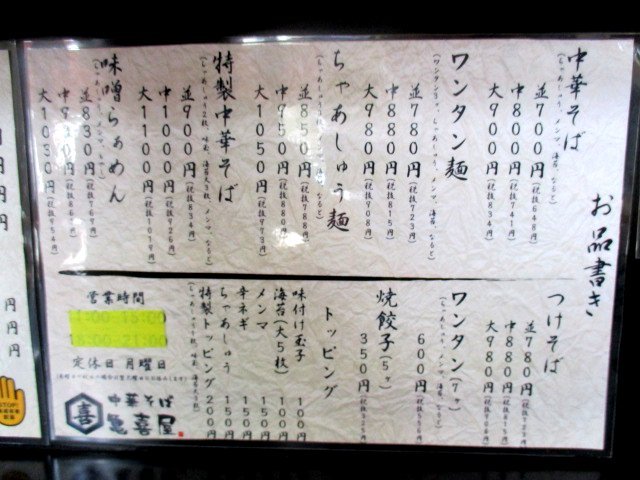 お品書き
中華そば
(ちゃあしゅう、メンマ、海苔、なると)
並700円(税抜648円)
中800円(税抜741円)
大900円(税抜834円)
ワンタン麺
(ワンタン5ヶ、ちゃあしゅう、メンマ、海苔、なると)
並780円(税抜723円)
中880円(税抜815円)
大980円(税抜908円)
ちゃあしゅう麺
並850円(税抜788円)
中950円(税抜880円)
大1050円(税抜973円)
特製中華そば
並900円(税抜834円)
中1000円(税抜926円)
大1100円(税抜1019円)
味噌らぁめん
並830円(税抜769円)
中930円
大1030円(税抜954円)
つけそば
並780円(税抜723円)
中880円(税抜815円)
大980円
ワンタン(7ヶ)
600円(税抜556円)
焼餃子(5ヶ)
350円(税抜325円)
トッピング
味付け玉子 100円
海苔(大5枚) 100円
メンマ 150円
辛ネギ 150円
ちゃあしゅう 150円
特製トッピング 200円
営業時間
定休日 月曜日
喜
中華そば
亀喜屋
STOP!
円
円
円
円
円
円